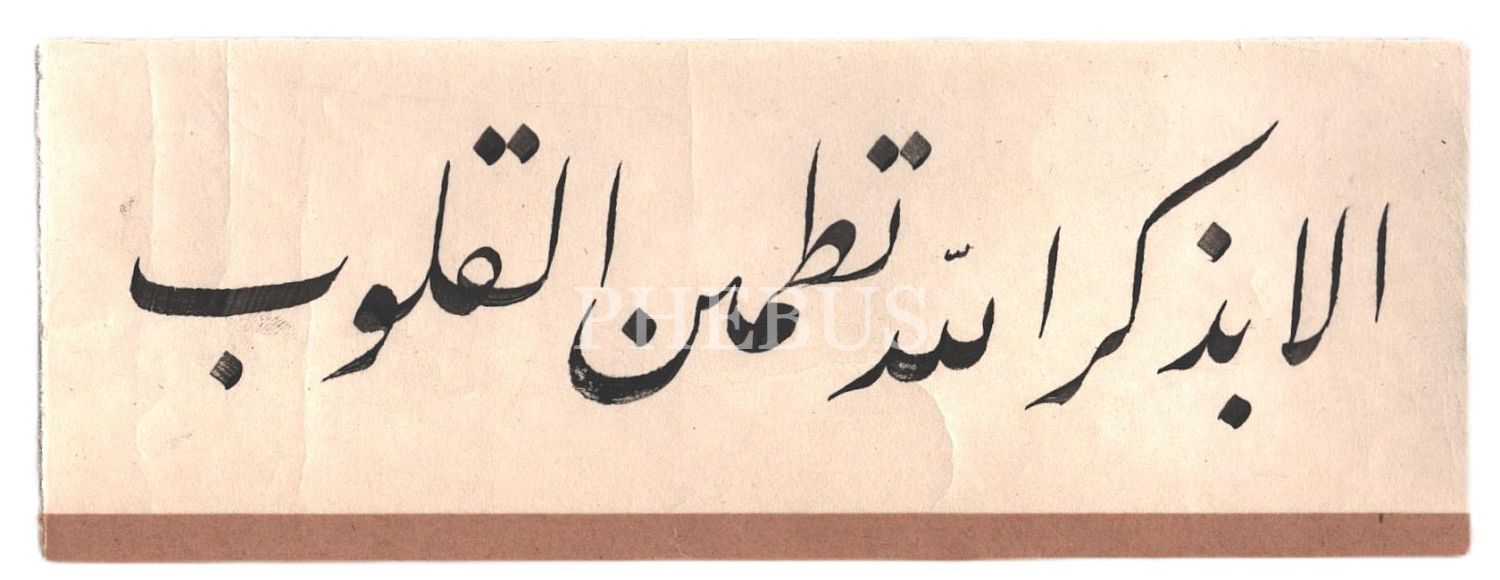 الا بذكر الله تطمئن القلوب
PHEBUS